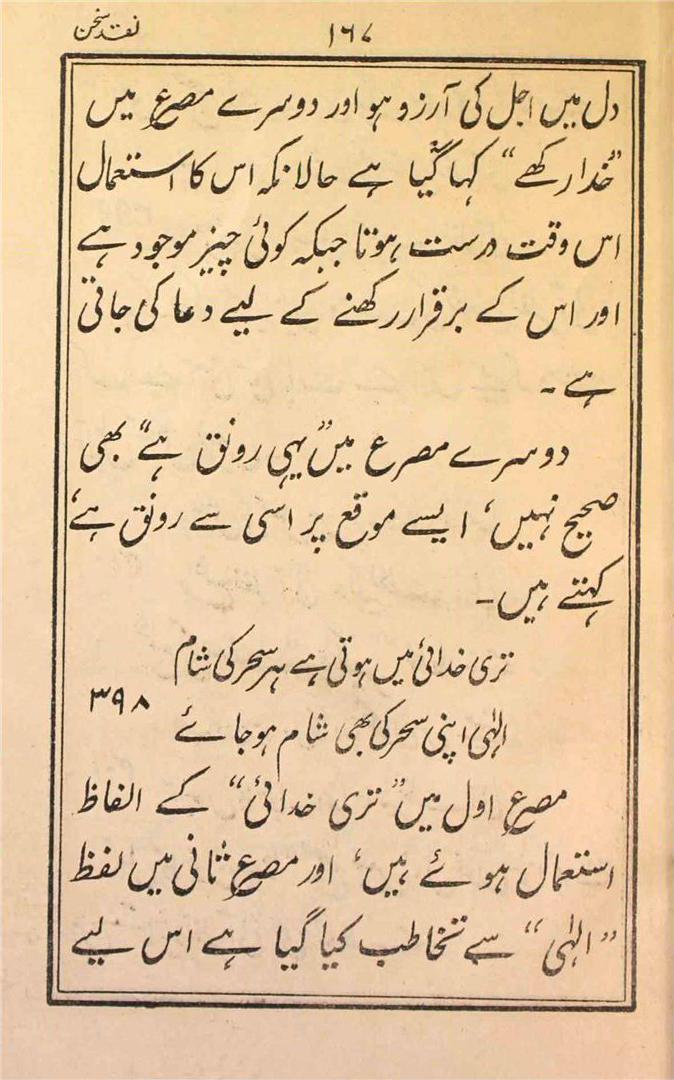 نقد سخن
۱۶۷
دل میں اجل کی آرزو ہو اور دوسرے مصرع میں
”خدا رکھے“ کہا گیا ہے حالانکہ اس کا استعمال
اس وقت درست ہوتا جبکہ کوئی چیز موجود ہے
اور اس کے برقرار رکھنے کے لیے دعا کی جاتی
ہے۔
دوسرے مصرع میں ”یہی رونق ہے“ بھی
صحیح نہیں، ایسے موقع پر اسی سے رونق ہے،
کہتے ہیں۔
تری خدائی میں ہوتی ہے ہر سحر کی شام
۳۹۸
الہٰی اپنی سحر کی بھی شام ہو جائے
مصرع اول میں ”تری خدائی“ کے الفاظ
استعمال ہوئے ہیں، اور مصرع ثانی میں لفظ
”الہٰی“ سے تخاطب کیا گیا ہے اس لیے